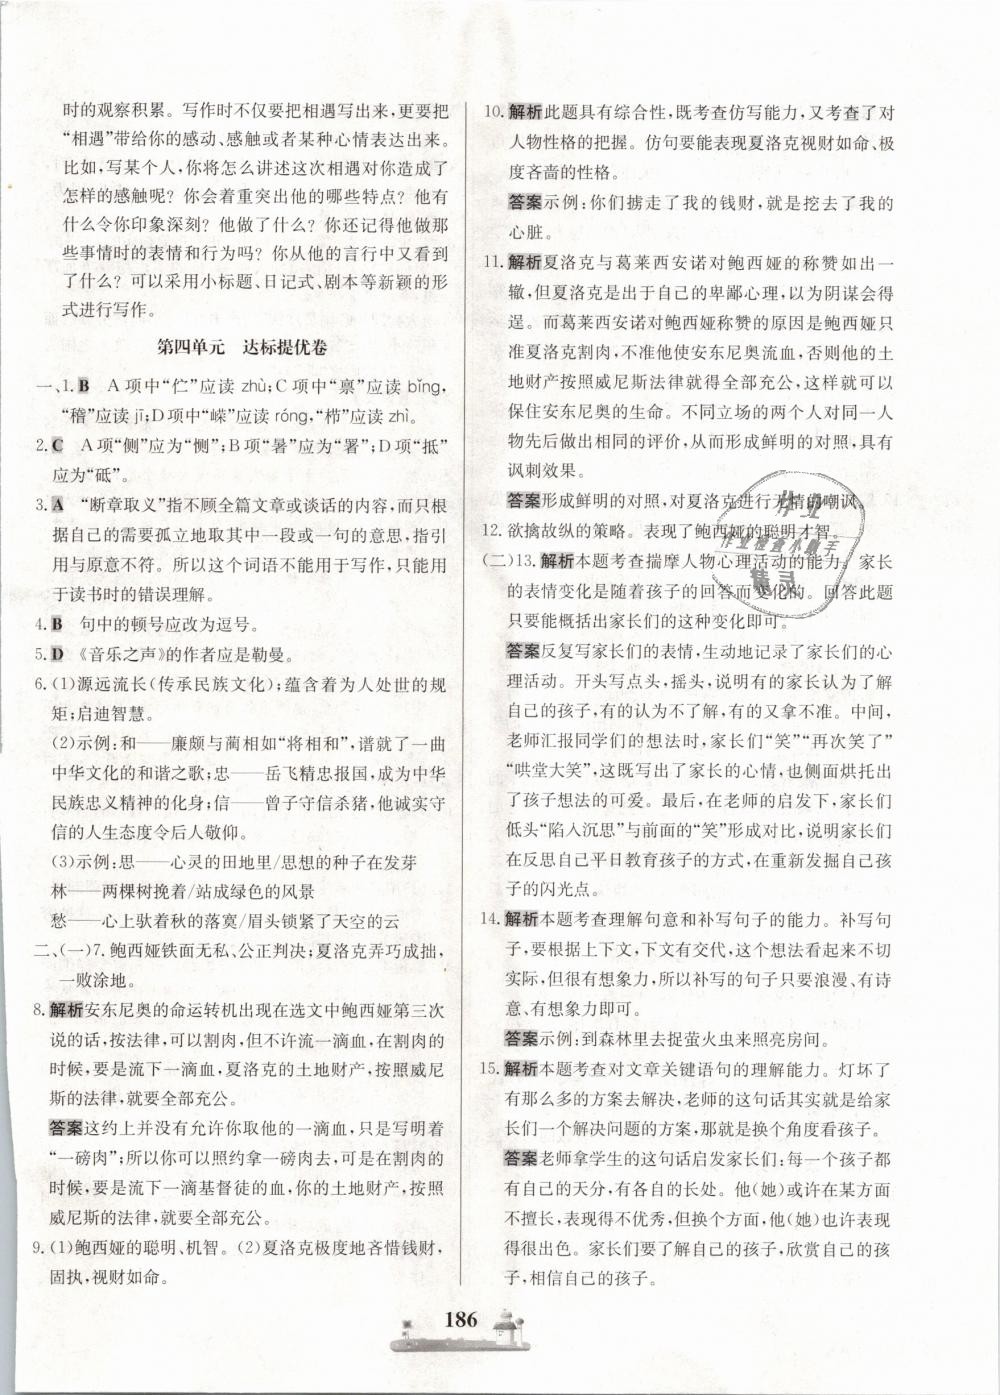 时的观察积累。写作时不仅要把相遇写出来,更要把
“相遇”带给你的感动、感触或者某种心情表达出来。
比如,写某个人,你将怎么讲述这次相遇对你造成了
怎样的感触呢?你会着重突出他的哪些特点?他有
什么令你印象深刻?他做了什么?你还记得他做那
些事情时的表情和行为吗?你从他的言行中又看到
了什么?可以采用小标题、日记式、剧本等新颖的形
式进行写作。
第四单元 达标提优卷
一、1. B A项中“伫”应读 zhù;C项中“禀”应读 bǐng,
“稽”应读 jī;D项中“嵘”应读 róng,“栉”应读 zhì。
2. C A项“侧”应为“恻”;B项“暑”应为“署”;D项“抵”
应为“砥”。
3. A “断章取义”指不顾全篇文章或谈话的内容,而只根
据自己的需要孤立地取其中一段或一句的意思,指引
用与原意不符。所以这个词语不能用于写作,只能用
于读书时的错误理解。
4. B 句中的顿号应改为逗号。
5. D 《音乐之声》的作者应是勒曼。
6. (1)源远流长(传承民族文化);蕴含着为人处世的规
矩;启迪智慧。
(2)示例:和——廉颇与蔺相如“将相和”,谱就了一曲
中华文化的和谐之歌;忠——岳飞精忠报国,成为中华
民族忠义精神的化身;信——曾子守信杀猪,他诚实守
信的人生态度令后人敬仰。
(3)示例:思——心灵的田地里/思想的种子在发芽
林——两棵树挽着/站成绿色的风景
愁——心上驮着秋的落寞/眉头锁紧了天空的云
二、(一)7. 鲍西娅铁面无私、公正判决;夏洛克弄巧成拙,
一败涂地。
8. 解析安东尼奥的命运转机出现在选文中鲍西娅第三次
说的话,按法律,可以割肉,但不许流一滴血,在割肉的
时候,要是流下一滴血,夏洛克的土地财产,按照威尼
斯的法律,就要全部充公。
答案这约上并没有允许你取他的一滴血,只是写明着
“一磅肉”;所以你可以照约拿一磅肉去,可是在割肉的
时候,要是流下一滴基督徒的血,你的土地财产,按照
威尼斯的法律,就要全部充公。
9. (1)鲍西娅的聪明、机智。(2)夏洛克极度地吝惜钱财,
固执,视财如命。
10. 解析此题具有综合性,既考查仿写能力,又考查了对
人物性格的把握。仿句要能表现夏洛克视财如命、极
度吝啬的性格。
答案示例:你们掳走了我的钱财,就是挖去了我的
心脏。
11. 解析夏洛克与葛莱西安诺对鲍西娅的称赞如出一
辙,但夏洛克是出于自己的卑鄙心理,以为阴谋会得
逞。而葛莱西安诺对鲍西娅称赞的原因是鲍西娅只
准夏洛克割肉,不准他使安东尼奥流血,否则他的土
地财产按照威尼斯法律就得全部充公,这样就可以
保住安东尼奥的生命。不同立场的两个人对同一人
物先后做出相同的评价,从而形成鲜明的对照,具有
讽刺效果。
答案形成鲜明的对照,对夏洛克进行无情的嘲讽。
12. 欲擒故纵的策略。表现了鲍西娅的聪明才智。
(二)13. 解析本题考查揣摩人物心理活动的能力。家长
的表情变化是随着孩子的回答而变化的。回答此题
只要能概括出家长们的这种变化即可。
答案反复写家长们的表情,生动地记录了家长们的心
理活动。开头写点头,摇头,说明有的家长认为了解
自己的孩子,有的认为不了解,有的又拿不准。中间,
老师汇报同学们的想法时,家长们“笑”“再次笑了”
“哄堂大笑”,这既写出了家长的心情,也侧面烘托出
了孩子想法的可爱。最后,在老师的启发下,家长们
低头“陷入沉思”与前面的“笑”形成对比,说明家长们
在反思自己平日教育孩子的方式,在重新发掘自己孩
子的闪光点。
14. 解析本题考查理解句意和补写句子的能力。补写句
子,要根据上下文,下文有交代,这个想法看起来不切
实际,但很有想象力,所以补写的句子只要浪漫、有诗
意、有想象力即可。
答案示例:到森林里去捉萤火虫来照亮房间。
15. 解析本题考查对文章关键语句的理解能力。灯坏了
有那么多的方案去解决,老师的这句话其实就是给家
长们一个解决问题的方案,那就是换个角度看孩子。
答案老师拿学生的这句话启发家长们:每一个孩子都
有自己的天分,有各自的长处。他(她)或许在某方面
不行,表现得不优秀,但换个方面,他(她)也许表现
得很出色。家长们要了解自己的孩子,欣赏自己的孩
子,相信自己的孩子。
作业
作业检查小助手
精灵
186